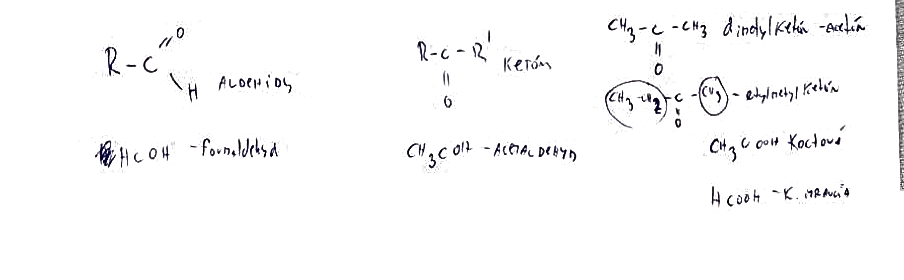 R-C=O
H ALDEHIDY
HCOH - formaldehyd
R-C-R' KETÓN
O
CH3COH - ACETALDEHYD
CH3-C-CH3 dimetylketón - Acetón
O
CH3-CH2-C-CH3 - etylmetyl ketón
O
CH3COOH Koctová
HCOOH - K. MRAVČIA